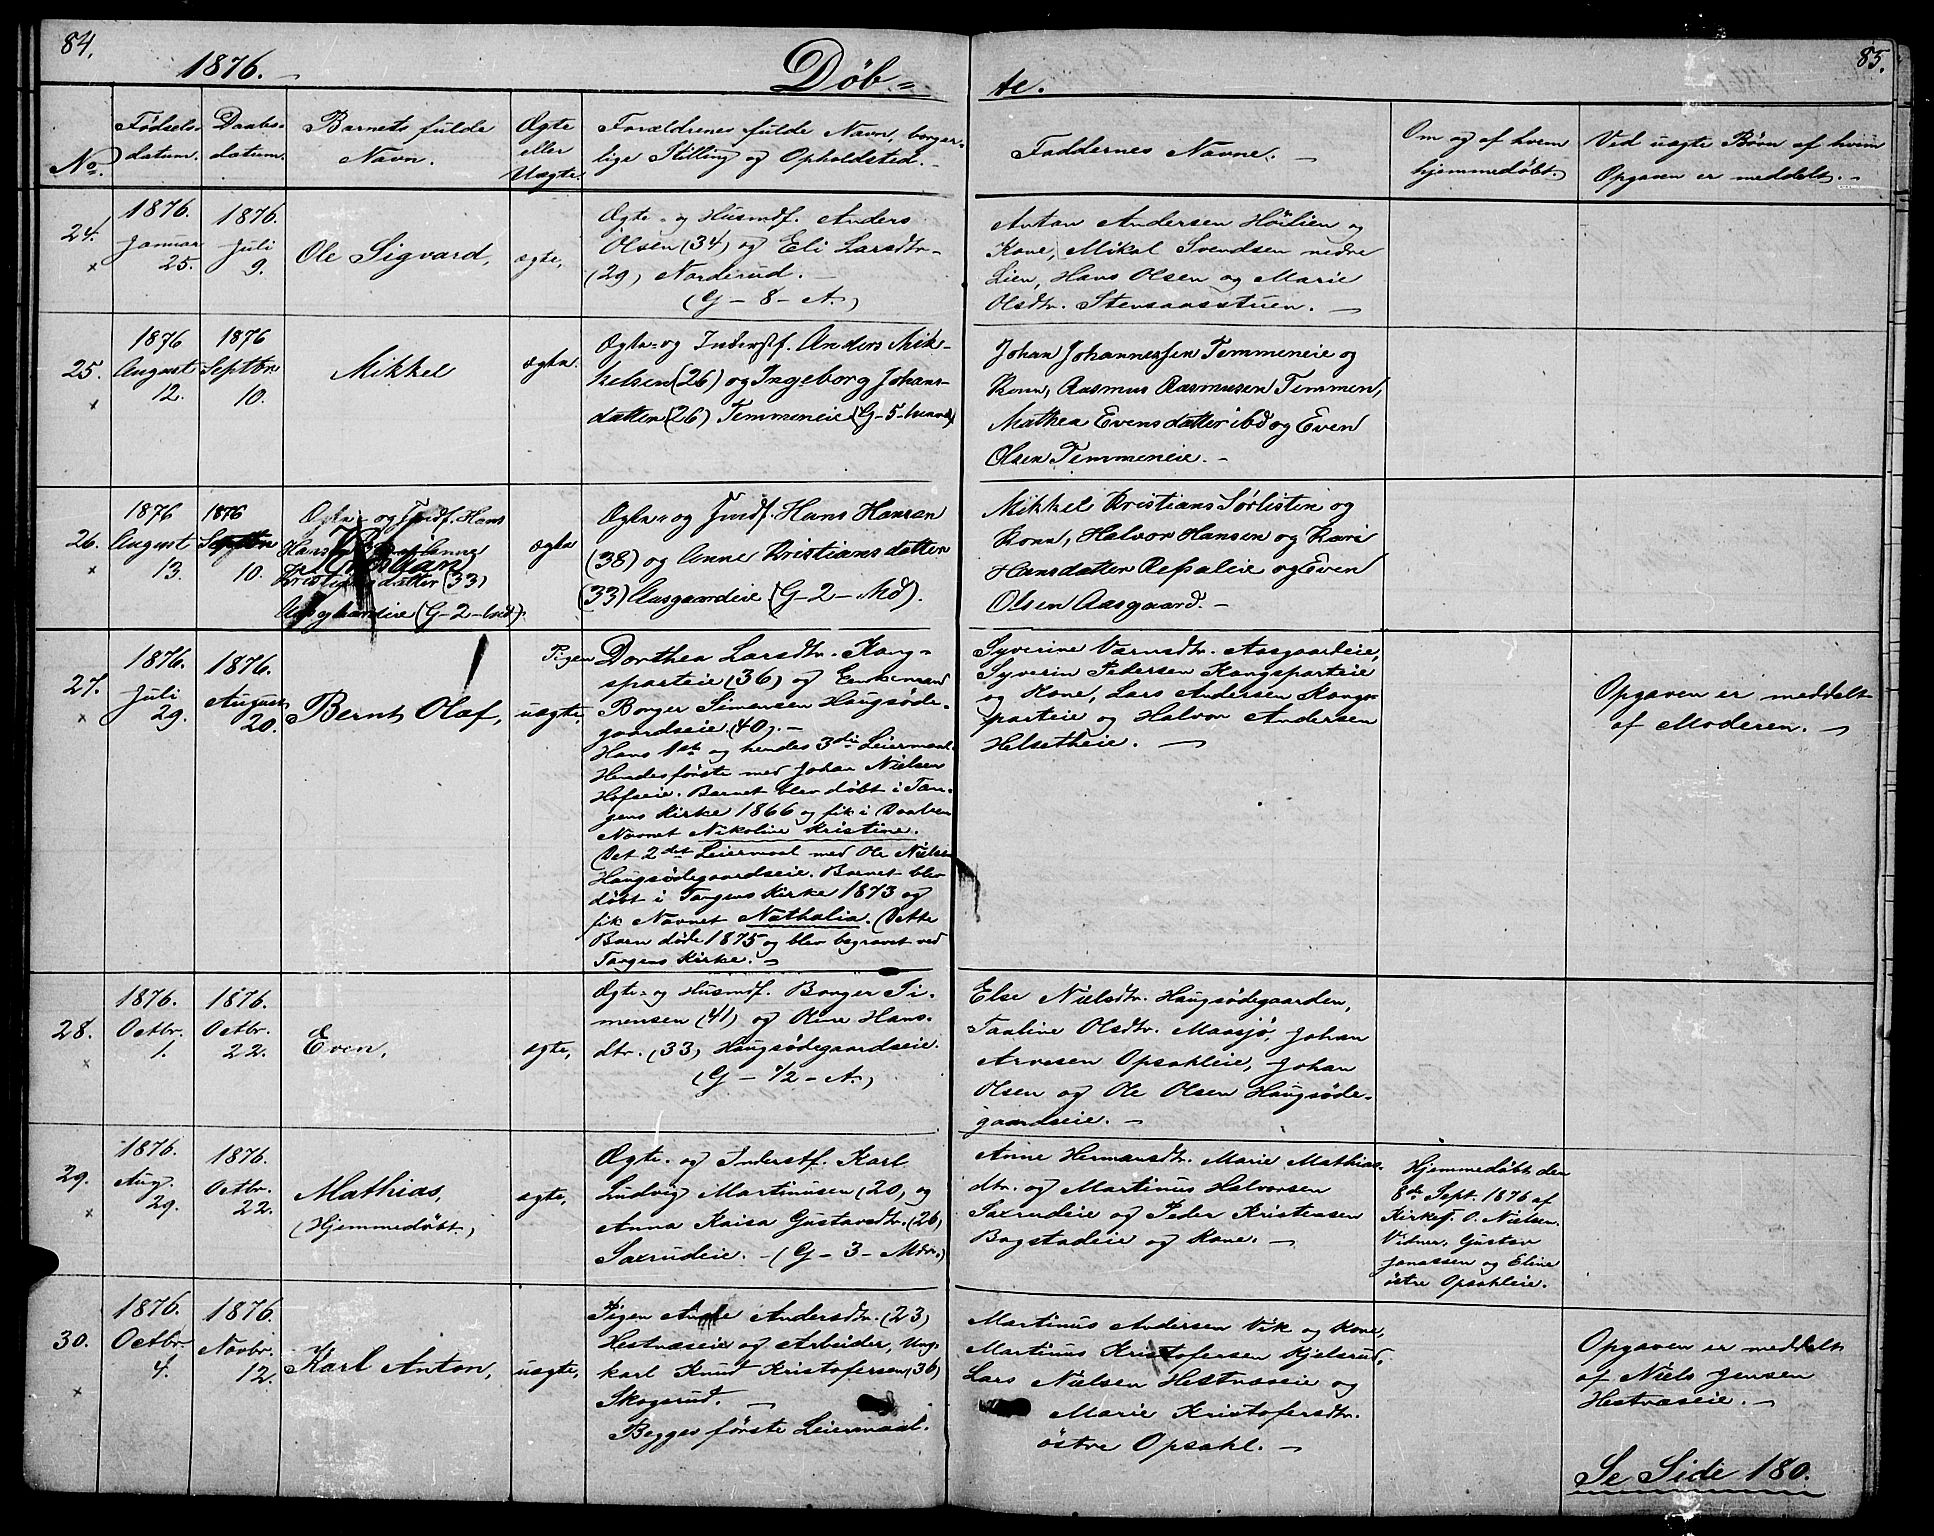 84.
1876.
Døb-
te.
85.
No.
Fødsels-
datum.
Daabs-
datum.
Barnets fulde
Navn.
Ægte
eller
Uægte.
Forældrenes fulde Navn, borger-
lige Stilling og Opholdsted.
Faddernes Navne.
Om og af hvem
hjemmedøbt.
Ved uægte Børn af hvem
Opgaven er meddelt.
24.
1876.
Januar
25.
1876.
Juli
9.
Ole Sigvard,
ægte,
Ægte- og Husmdf. Anders
Olsen (34) og Eli Larsdtr.
(29) Norderud.
(G - 8 - A.)
Anton Andersen Höilien og
Kone, Mikal Svendsen nedre
Lien, Hans Olsen og Marie
Olsdtr. Stensaasstuen.
25.
1876
August
12.
1876
Septbr
10.
Mikkel
ægte.
Ægte- og Inderstf. Anders Mik-
kelsen (26) og Ingeborg Johans-
datter (26) Temmeneie (G-5-
Johan Johannessen Temmeneie og
Kone, Rasmus Rasmussen Temmen,
Mathea Evensdatter ibd og Even
Olsen Temmeneie.
26.
1876
August
13.
1876
Septbr
10.
Ægte- og Indf. Hans
Kristian
Kristiansdatter (33)
Aasgaardeie (G-2-
ægte
Ægte- og Indf. Hans Hansen
(38) og Anne Kristiansdatter
(33) Aasgaardeie (G-2-Md).
Mikkel Kristians Sørlistin og
Kone, Halvor Hansen og Kari
Hansdatter Repaleie og Even
Olsen Aasgaard.
27.
1876.
Juli
29.
1876.
August
20.
Bernt Olaf,
uægte,
Pigen Dorthea Larsdtr. Kong-
sparteie (36) og Enkemand
Borger Simensen Haugsøde-
gaardseie (40).
Hans 1ste og hendes 3die Leiermaal.
Hendes første med Johan Nielsen
Hofseie. Barnet blev døbt i Tan-
gens Kirke 1866 og fik i Daaben
Navnet Nikoline Kristine.
Det 2det Leiermaal med Ole Nielsen
Haugsødegaardseie. Barnet blev
døbt i Tangens Kirke 1873 og
fik Navnet Nathalia. Dette
Barn døde 1875 og blev begravet ved
Tangens Kirke.
Syverine Værnsdtr. Aasgaardeie,
Syverin Pedersen Kongsparteie
og Kone, Lars Andersen Kongs-
parteie og Halvor Andersen
Helsetheie.
Opgaven er meddelt
af Moderen.
28.
1876.
Octbr.
1.
1876.
Octbr.
22.
Even,
ægte,
Ægte- og Husmdf. Borger Si-
mensen (41) og Oline Hans-
dtr. (33) Haugsødegaardseie.
(G - 1/2 - A.)
Else Nielsdtr. Haugsødegaarden,
Pauline Olsdtr. Maasjø, Johan
Arvesen Opsahleie, Johan
Olsen og Ole Olsen Haugsøde-
gaardseie.
29.
1876.
Aug.
29.
1876.
Octbr.
22.
Mathias,
(Hjemmedøbt.)
ægte,
Ægte- og Inderstf. Karl
Ludvig Martinusen (20) og
Anna Kaisa Gustavsdtr. (26)
Saxrudeie. - (G - 3 - Mdr.)
Anne Hermansdtr. Marie Mathias-
dtr. og Martinus Halvorsen
Saxrudeie og Peder Kristensen
Bogstadeie og Kone.
Hjemmedøbt den
8de Sept. 1876 af
Kirkes. O. Nielsen.
Vidner. Gustav
Jonassen og Eline
østre Opsahleie.
30.
1876.
Octbr.
4.
1876.
Novbr.
12.
Karl Anton,
uægte,
Pigen Anne Andersdtr. (23)
Hestnæseie og Arbeider, Ung-
karl Knud Kristofersen (36)
Skogsrud.
Begges første Leiermaal.
Martinus Andersen Vik og Kone,
Martinus Kristofersen Kjelsrud,
Lars Nielsen Hestnæseie og
Marie Kristofersdtr.
østre Opsahl.
Opgaven er meddelt
af Niels Jensen
Hestnæseie.
Se Side 180.